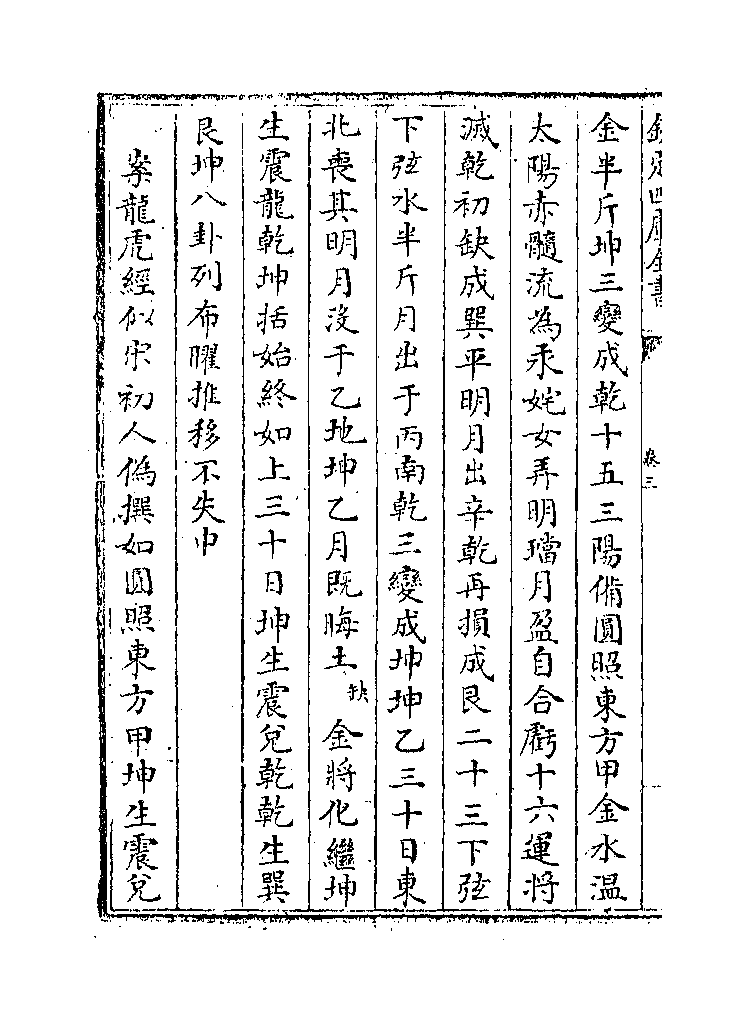 欽定四庫全書　卷三
金半斤坤三變成乾十五三陽備圓照東方甲金水溫
太陽赤髓流為汞姹女弄明璫月盈自合虧十六運將
減乾初缺成巽平明月出辛乾再損成艮二十三下弦
下弦水半斤月出于丙南乾三變成坤坤乙三十日東
北喪其明月沒于乙地坤乙月既晦土缺金將化繼坤
生震龍乾坤括始終如上三十日坤生震兌乾乾生巽
艮坤八卦列布曜推移不失中
案龍虎經似宋初人偽撰如圓照東方甲坤生震兌